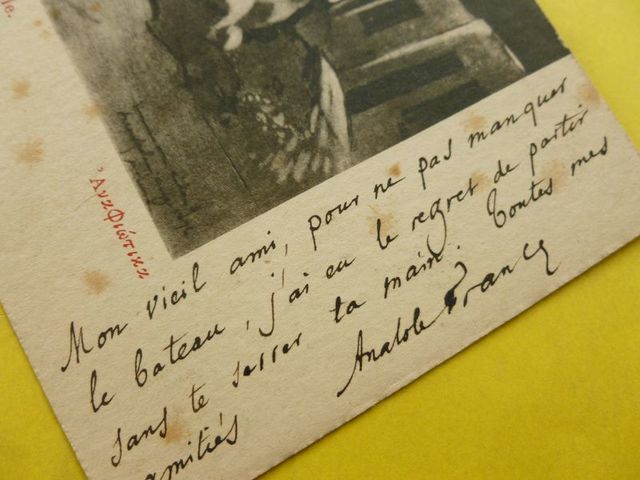 le.
Ἀναφιώτικα
Mon vieil ami, pour ne pas manquer
le bateau, j'ai eu le regret de partir
sans te serrer la main. Toutes mes
amitiés
Anatole France